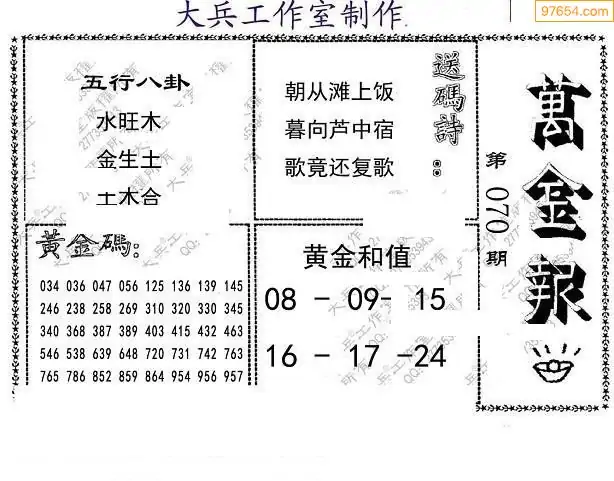 大兵工作室制作
97654.com
萬金報
第 070 期
五行八卦
水旺木
金生土
土木合
送碼詩：
朝从滩上饭
暮向芦中宿
歌竟还复歌
黃金碼：
034 036 047 056 125 136 139 145
246 238 258 269 310 320 330 345
340 368 387 389 403 415 432 463
546 538 639 648 720 731 742 763
765 786 852 859 864 954 956 957
黄金和值
08 - 09- 15
16 - 17 -24